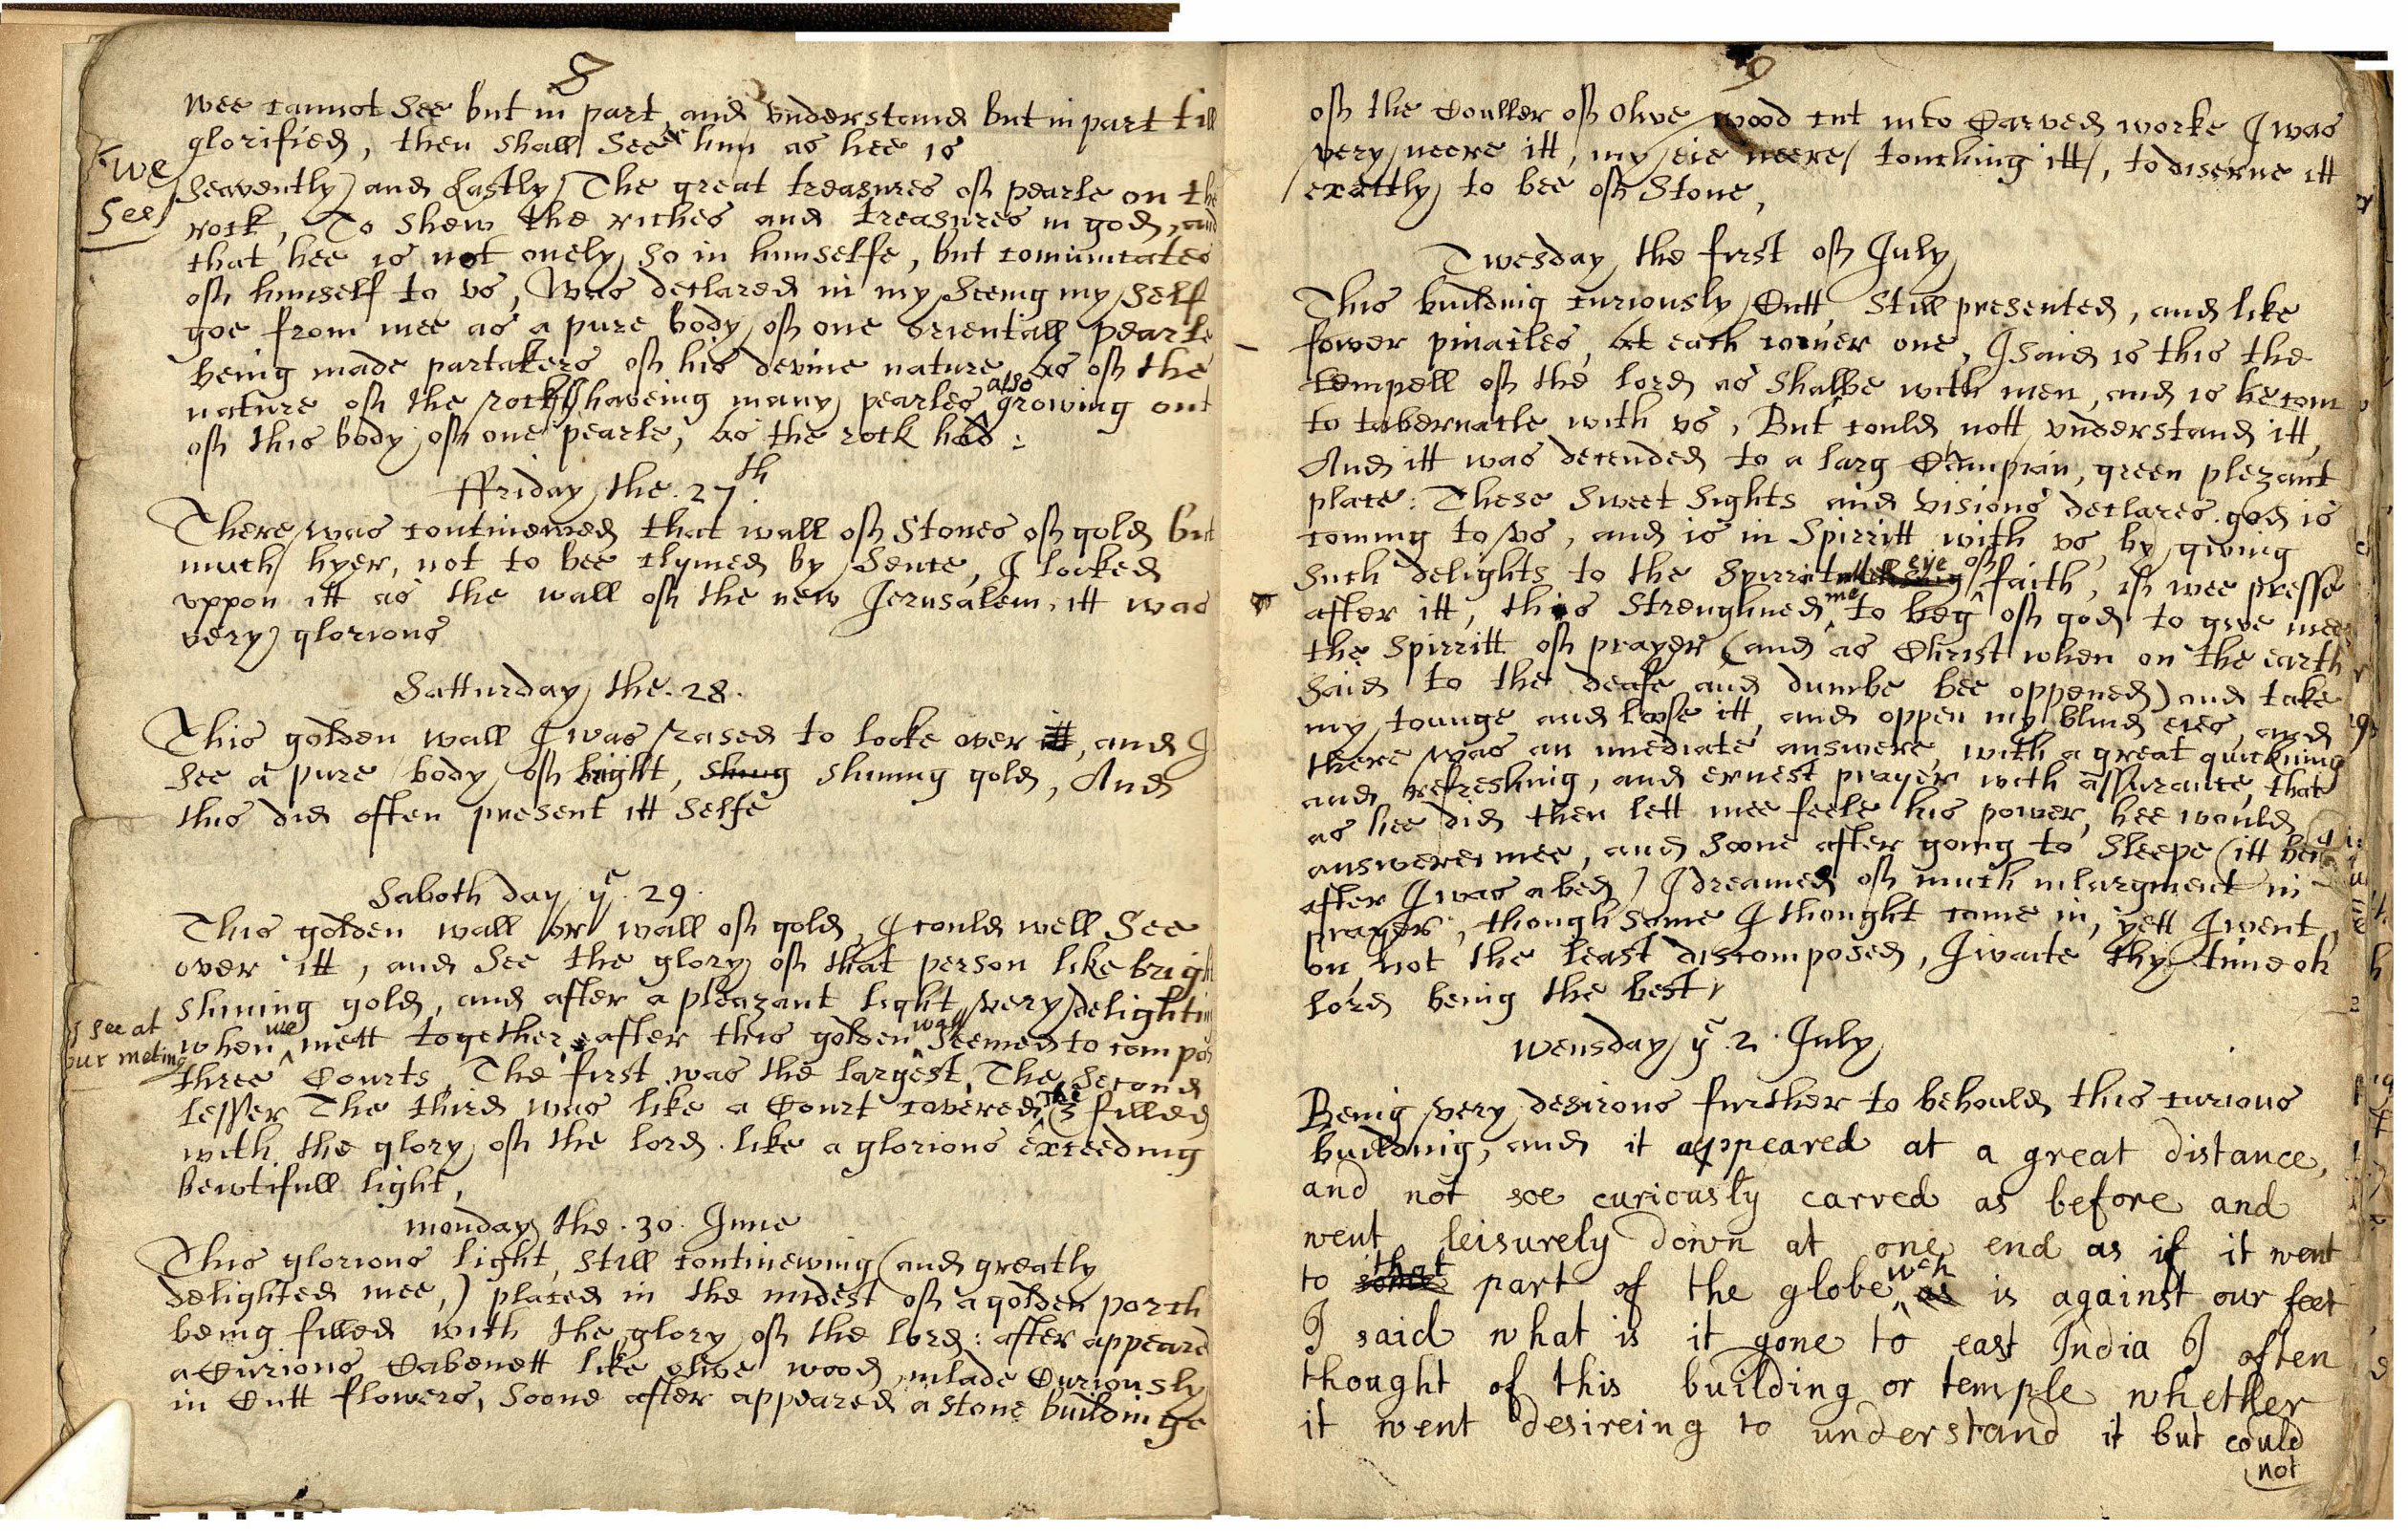 8
wee cannot See but in part and vnderstand but in part till
glorified, then shall See him as hee is
we
See
Seavently and Lastly The great treasures of pearle on the
rock, To shew the riches and treasures in god, and
that hee is not onely so in himselfe, but comunicates
of himself to vs, Was declared in my Seeing my Self
goe from mee as a pure body of one orientall pearle
being made partakers of his devine nature as of the
nature of the rock haveing many pearles also growing out
of this body of one pearle, as the rock had:
ffriday the 27th.
There was continewed that wall of Stones of gold but
much hyer, not to bee clymed by Sence, I locked
vppon itt as the wall of the new Jerusalem. itt was
very glorious
Satturday the. 28.
This golden wall I was rased to locke over itt, and I
See a pure body of bright, shing shining gold, And
this did often present itt Selfe
Saboth day ye. 29.
This golden wall or wall of gold, I could well See
over itt, and See the glory of that person like bright
shining gold, and after a pleazant light very delighting
I see at
our meting
when we mett together, after this golden wall Seemed to compos
three Courts, The first was the largest, The Second
lesser The third was like a Court covered, The 3 filled
with the glory of the lord. like a glorious exceeding
bewtifull light,
monday the. 30. June
This glorious light, still continewing (and greatly
delighted mee,) placed in the midest of a golden porch
being filled with the glory of the lord: after appeard
a Curious Cabenett like olive wood inlade Curiously
in Cutt flowers, Soone after appeared a stone buildinge
9
of the Couller of Olive wood cut into Carved worke I was
very neere itt, my eie neere touching itt, to diserne itt
exactly to bee of Stone,
Twesday the first of July
This building curiously Cutt Still presented, and like
fower pinacles, at each corner one, I Said is this the
tempell of the lord as shalbe with men, and is he com
to tabernacle with vs, But could nott vnderstand itt,
And itt was decended to a larg Champain, green plezant
place: These Sweet Sights and visions declares god is
coming to vs, and is in Spirritt with vs, by giving
Such delights to the Spirritual eye of faith, if wee presse
after itt, this Strenghned me to beg of god to give mee
the Spirritt of prayer (and as Christ when on the earth
Said to the deafe and dumbe bee oppened) and take
my tounge and loose itt, and oppen my blind eies, and
there was an imediate answere, with a great quickning
and refreshing, and ernest prayer with assurance, that
as hee did then lett mee feele his power, hee would
answere mee, and Soone after going to Sleepe (itt being
after I was abed) I dreamed of much inlargment in
prayer, though Some I thought came in, yett I went
on not the least discomposed, I waite thy time oh
lord being the best
Wensday ye. 2. July
Being very desirous further to behould this curious
building, and it appeared at a great distance,
and not soe curiously carved as before and
went leisurely down at one end as if it went
to that part of the globe wch is against our feet
I said what is it gone to east India I often
thought of this building or temple whether
it went desireing to understand it but could
not